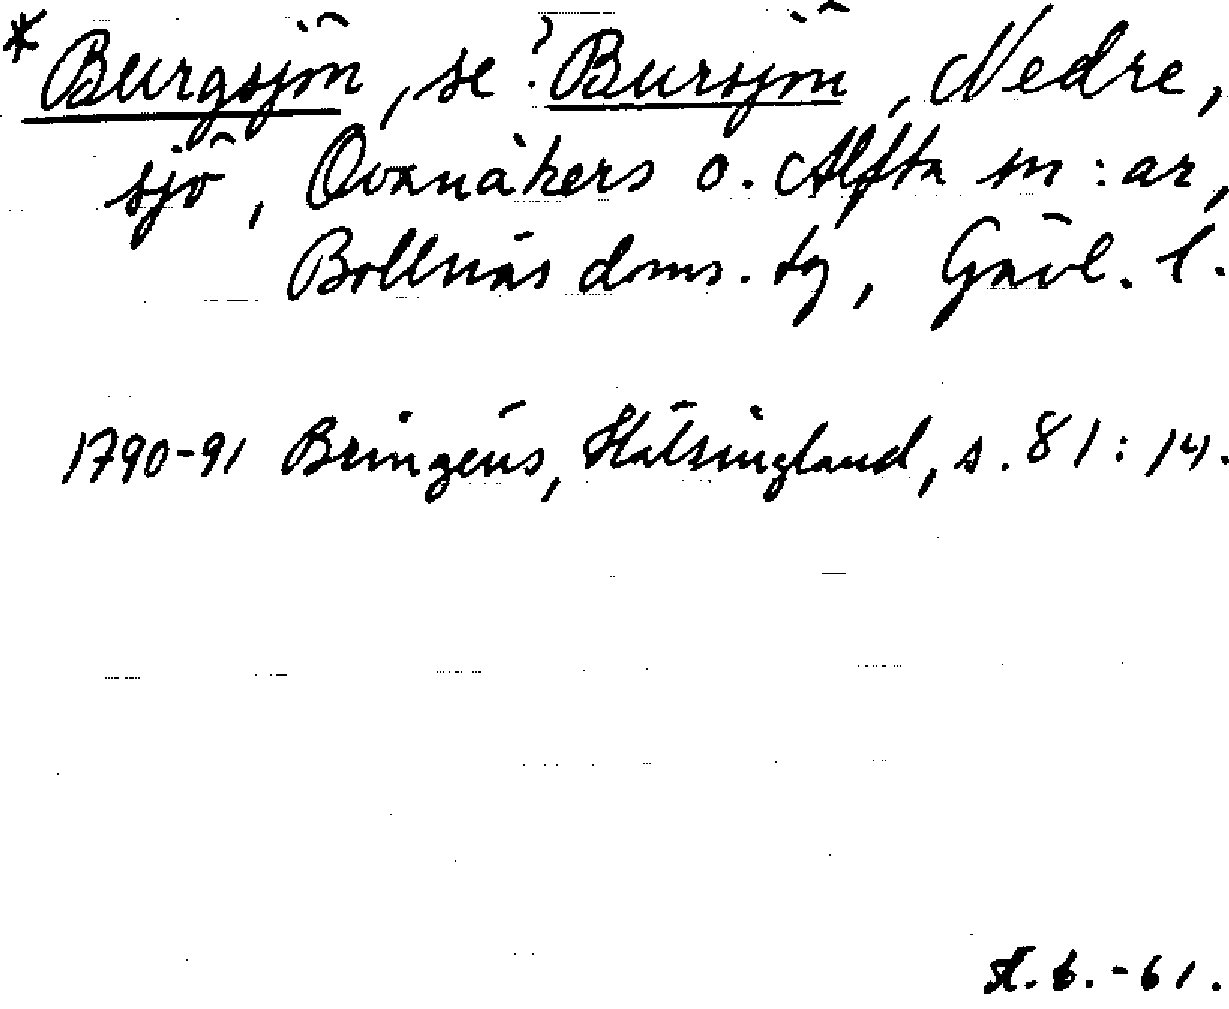 *Burgsjön, se ?Bursjön, Nedre,
sjö, Ovanåkers o. Alfta sn:ar,
Bollnäs doms. tg, Gävl. l.
1790-91 Bringéus, Hälsingland, s. 81:14.
A.b.-61.